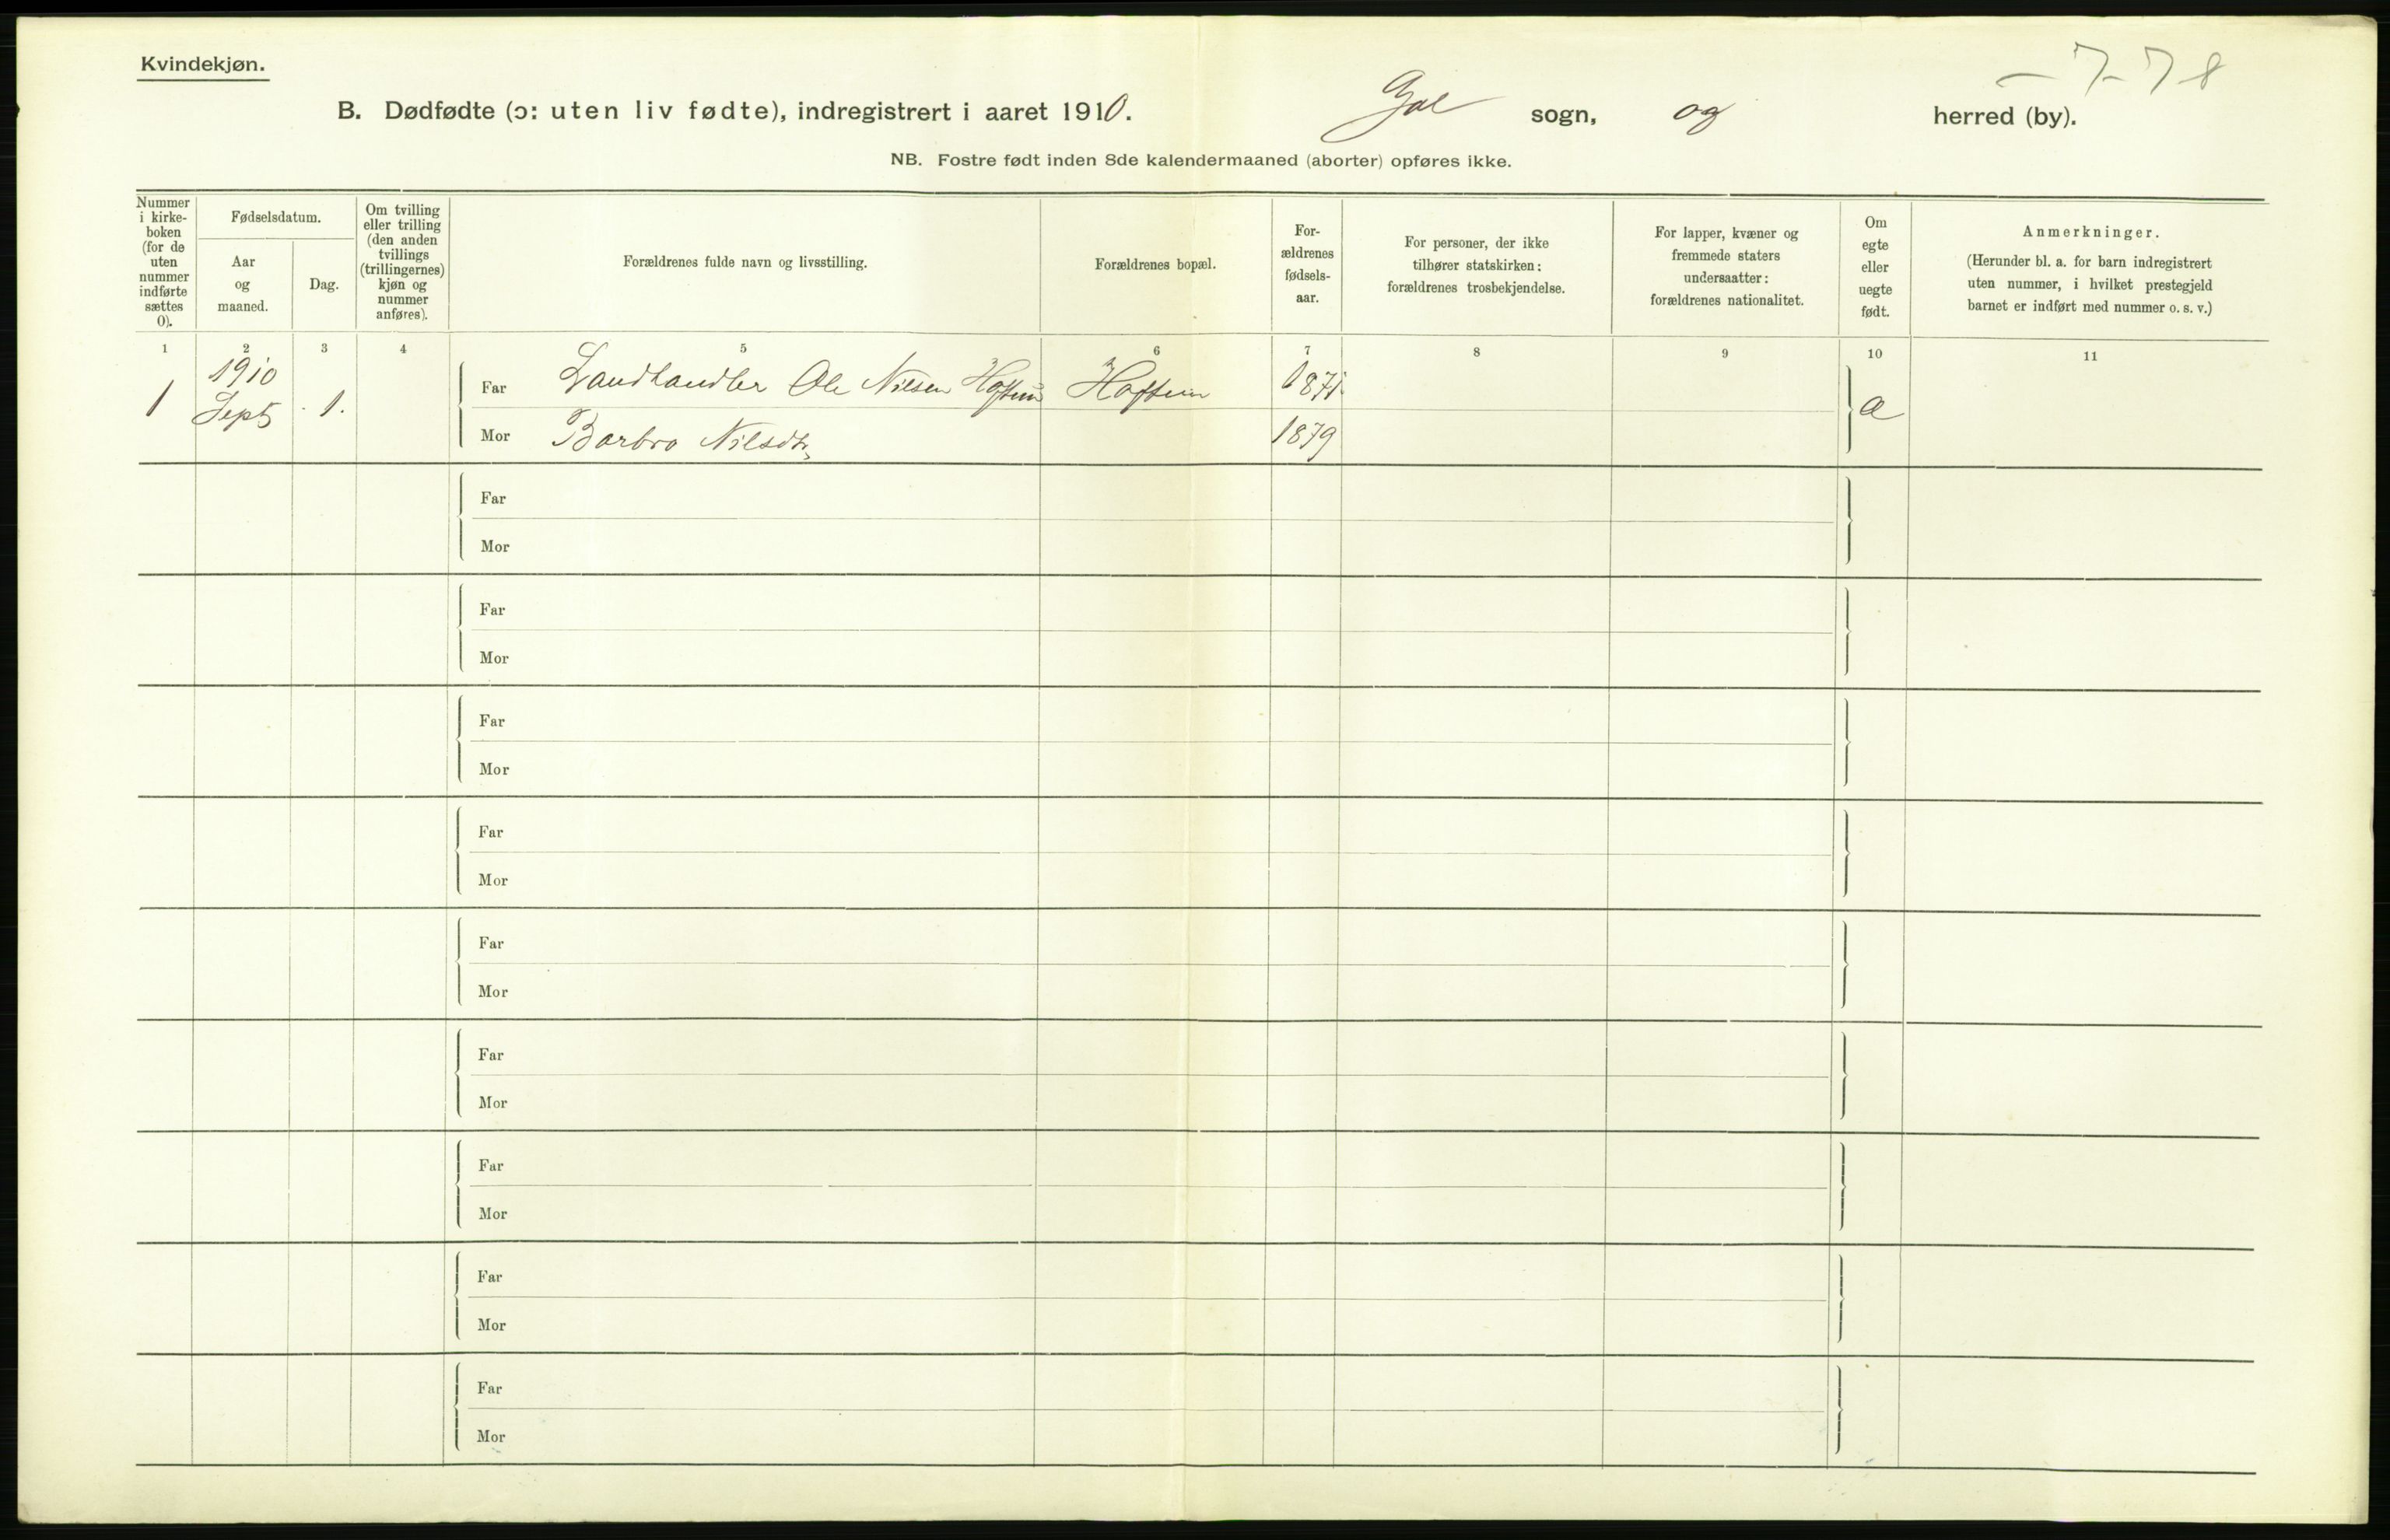 Kvindekjøn.
– 7 – 7 8
B. Dødfødte (ɔ: uten liv fødte), indregistrert i aaret 1910. Gol sogn, og herred (by).
NB. Fostre født inden 8de kalendermaaned (aborter) opføres ikke.
Nummer
i kirke-
boken
(for de
uten
nummer
indførte
sættes
0).
Fødselsdatum.
Aar
og
maaned.
Dag.
Om tvilling
eller trilling
(den anden
tvillings
(trillingernes)
kjøn og
nummer
anføres).
Forældrenes fulde navn og livsstilling.
Forældrenes bopæl.
For-
ældrenes
fødsels-
aar.
For personer, der ikke
tilhører statskirken:
forældrenes trosbekjendelse.
For lapper, kvæner og
fremmede staters
undersaatter:
forældrenes nationalitet.
Om
egte
eller
uegte
født.
Anmerkninger.
(Herunder bl. a. for barn indregistrert
uten nummer, i hvilket prestegjeld
barnet er indført med nummer o. s. v.)
1 2 3 4 5 6 7 8 9 10 11
1910
1 Sept. 1.
Far Landhandler Ole Nilsen Hoftun Hoftun 1871.
æ
Mor Barbro Nilsdtr. 1879
Far
Mor
Far
Mor
Far
Mor
Far
Mor
Far
Mor
Far
Mor
Far
Mor
Far
Mor
Far
Mor